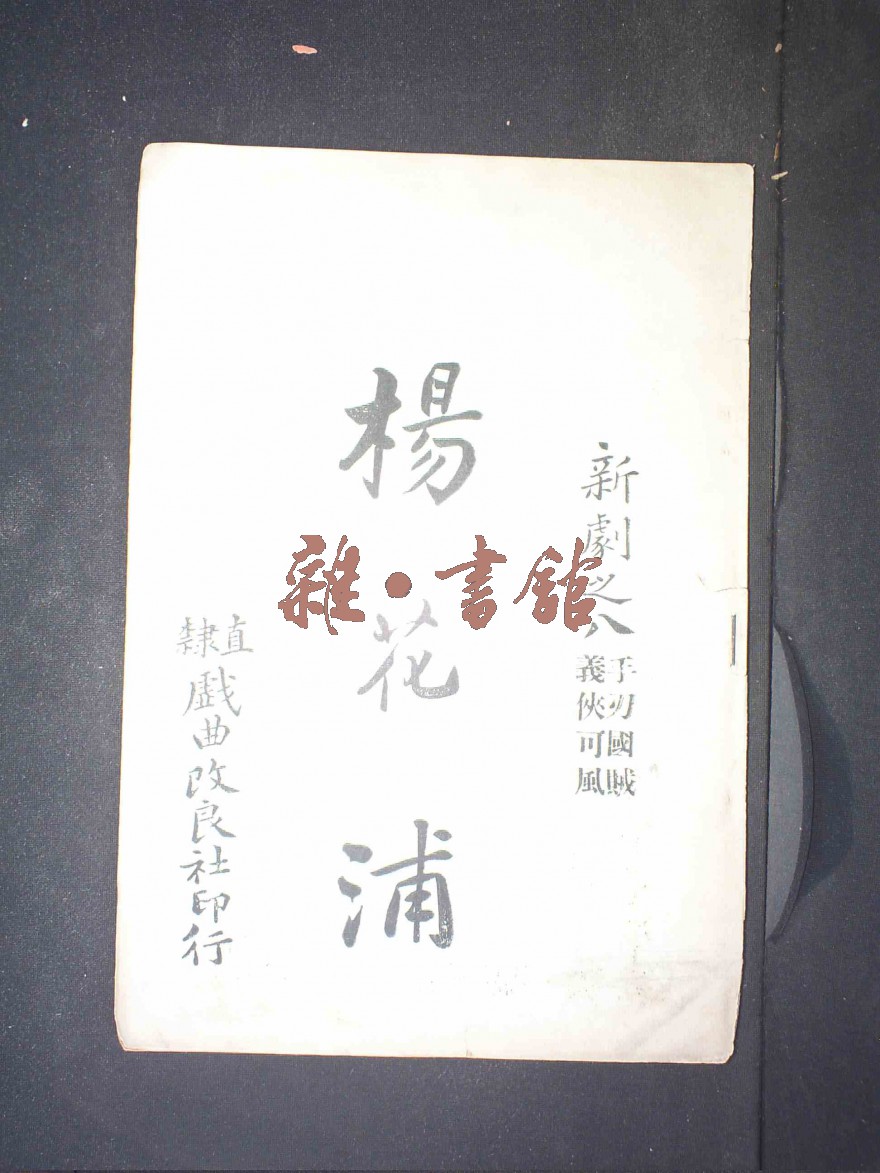 新劇之八
手刃國賊
義俠可風
楊花浦
直隸戲曲改良社印行
雜·書館